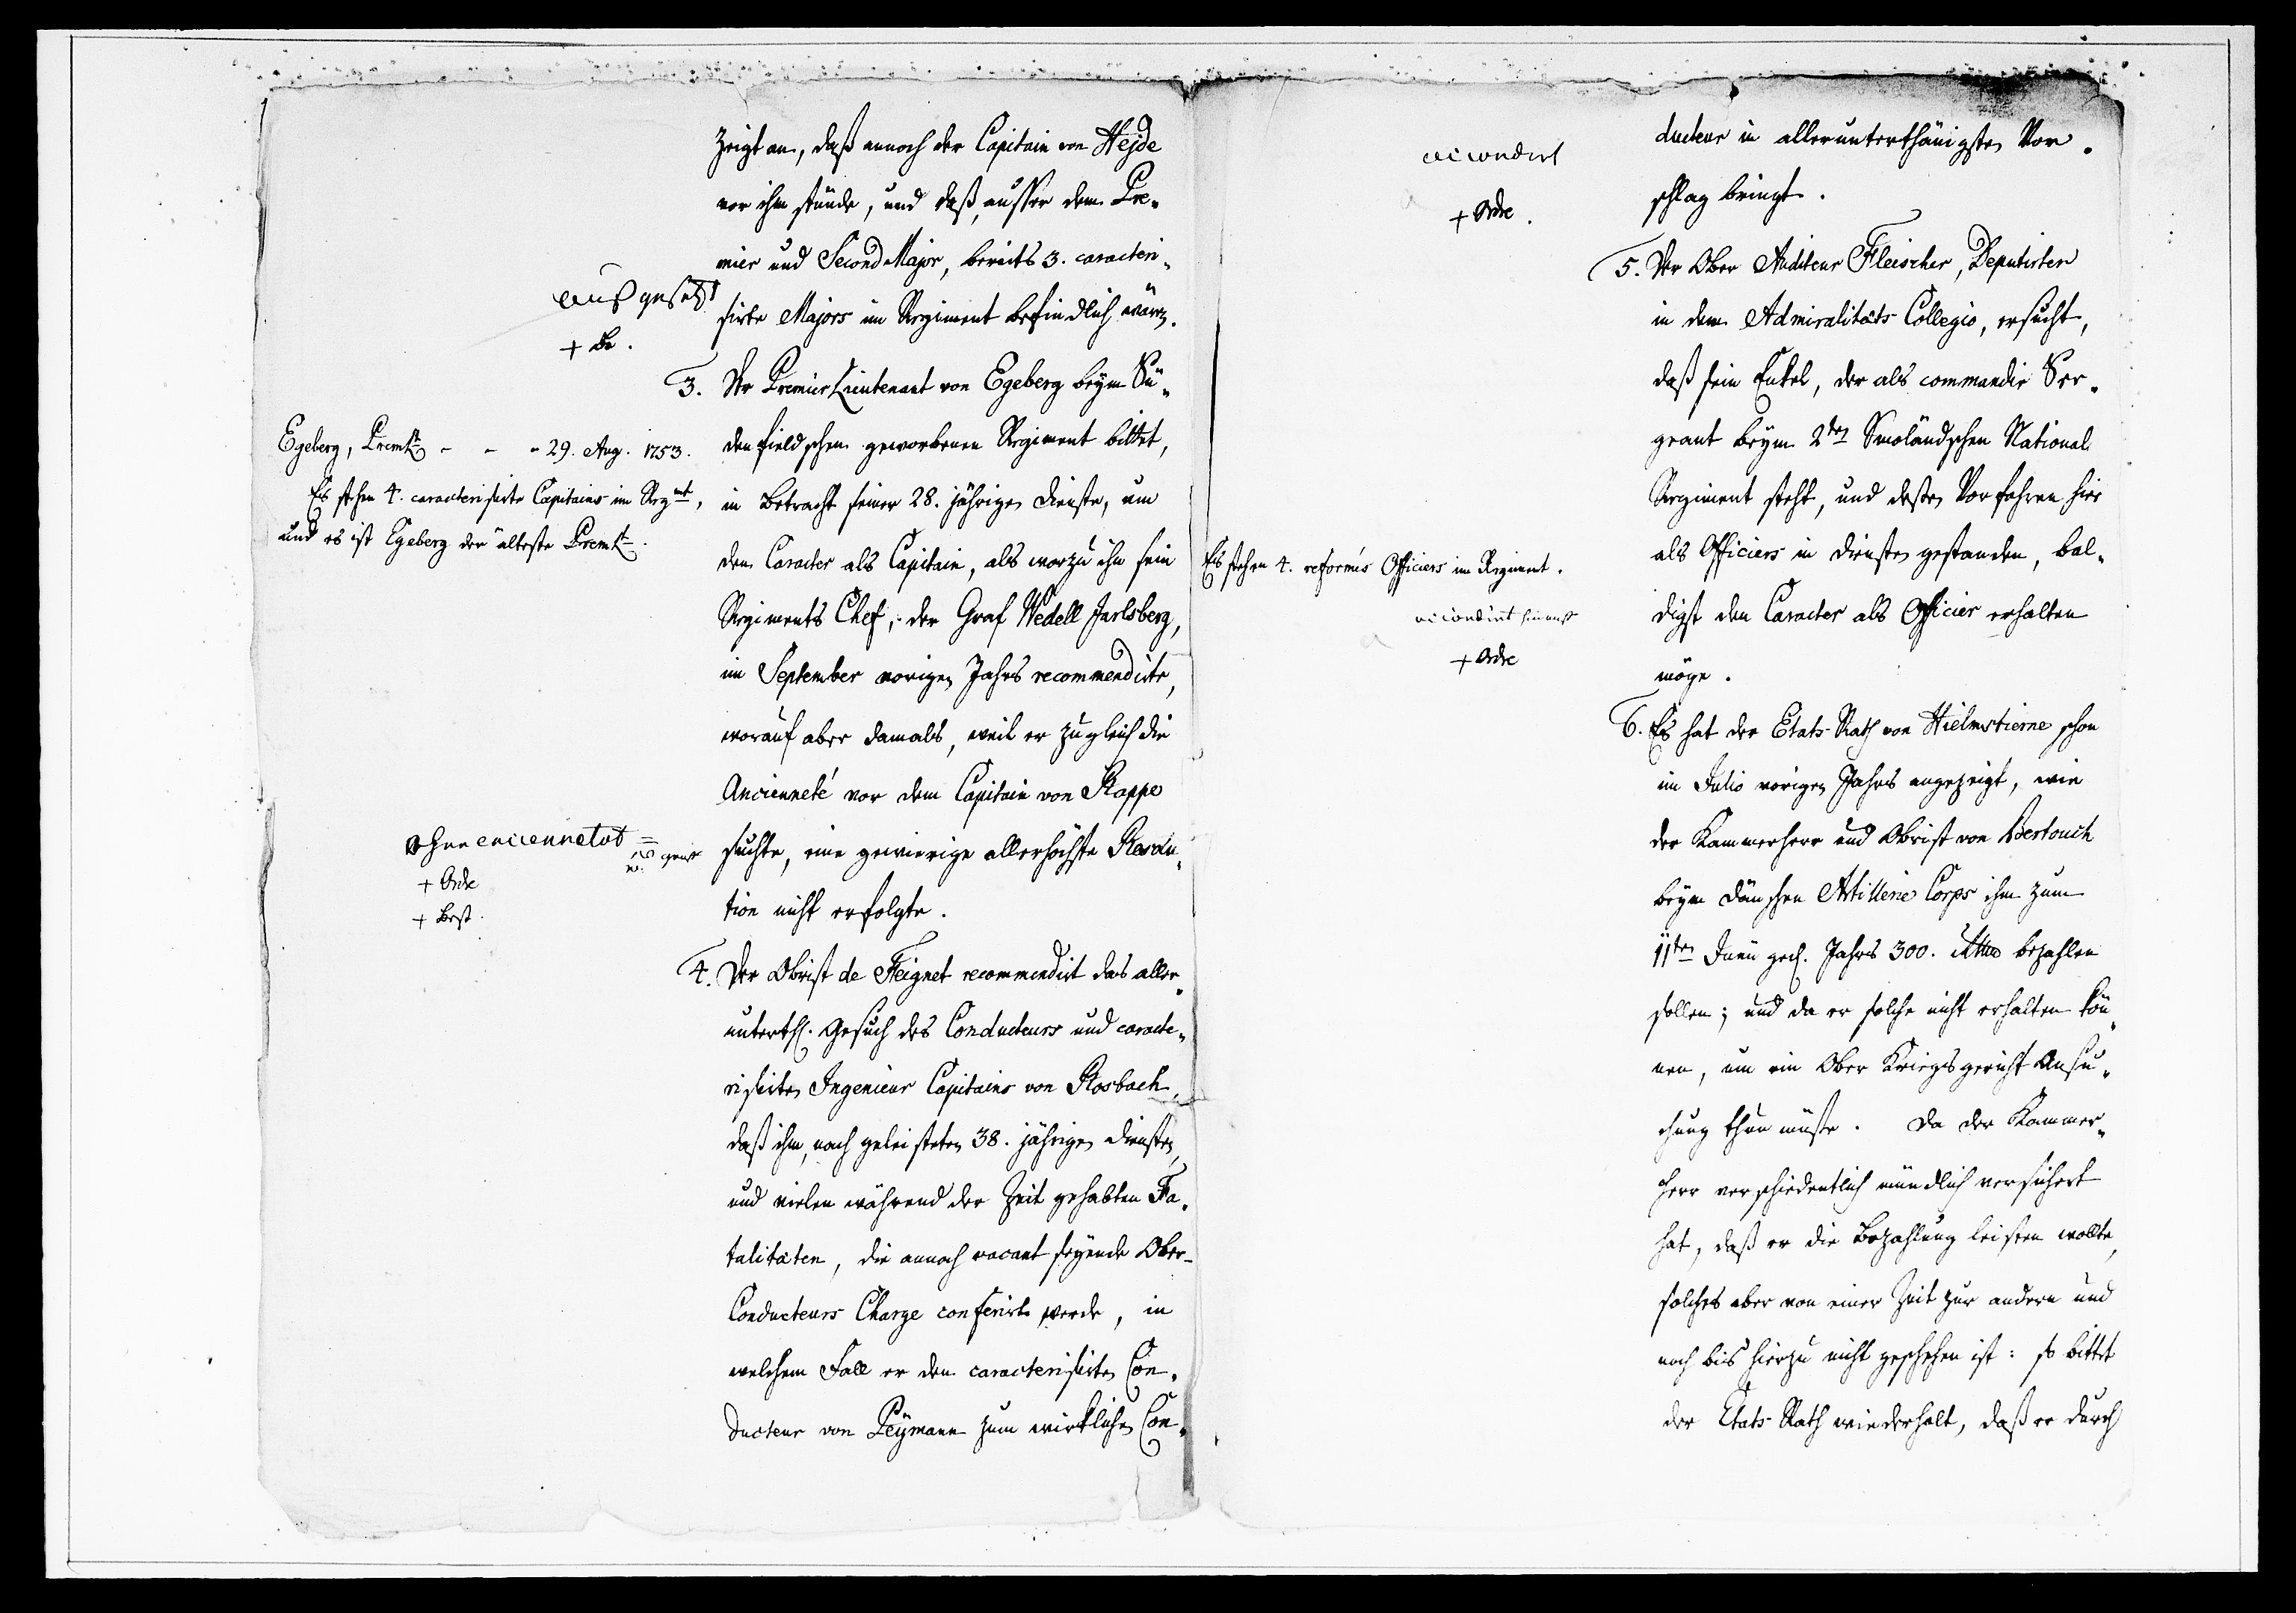 zeigt an, daß annoch der Capitain von Hejde
vor ihm stünde, und daß, ausser dem Pre-
mier und Second Major, bereits 3. caracteri-
sirte Majors im Regiment befindlich wären.
ausgesetzt
+ Be.
3. Der Premier Lieutenant von Egeberg beym Sü-
denfieldschen geworbenen Regiment bittet,
in Betracht seiner 28. jährigen Dienste, um
den Caracter als Capitain, als worzu ihn sein
Regiments Chef, der Graf Wedell Jarlsberg,
im September vorigen Jahrs recommendirte,
worauf aber damals, weil er zugleich die
Ancienneté vor dem Capitain von Rappe
suchte, eine gewierige allerhöchste Resolu-
tion nicht erfolgte.
Egeberg, Premlt - - - 29. Aug. 1753.
Es stehen 4. caracterisirte Capitains im Regmt,
und es ist Egeberg der älteste Premlt.
ohne enciennetot
+ Ordre
+ Best.
4. Der Obrist de Feignet recommendirt das aller-
unterth. Gesuch des Conducteurs und caracte-
risirten Ingenieur Capitains von Rosbach,
daß ihm, nach geleisteten 38. jährigen Diensten,
und vielen während der Zeit gehabten Fa-
talitäten, die annoch vacant seyende Ober-
Conducteurs Charge conferirt werde, in
welchem Fall er den caracterisirten Con-
ducteur von Peÿmann zum wirklichen Con-
ducteur in allerunterthänigsten Vor-
schlag bringt.
accordirt
+ Ordre.
5. Der Ober Auditeur Fleischer, Deputirter
in dem Admiralitäts Collegio, ersucht,
daß sein Enkel, der als commandir Ser-
geant beym 2ten Smoländschen National
Regiment steht, und dessen Vorfahren hier
als Officiers in Diensten gestanden, bal-
digst den Caracter als Officier erhalten
möge.
Es stehen 4. reformés Officiers im Regiment.
accordirt
+ Ordre
6. Es hat der Etats-Rath von Hielmstierne schon
im Julio vorigen Jahrs angezeigt, wie
der Kammerherr und Obrist von Bertouch
beym dänschen Artillerie Corps ihm zum
11ten Junii ged. Jahrs 300. Rthlr bezahlen
sollen; und da er solche nicht erhalten kön-
nen, um ein Ober Kriegsgericht Ansu-
chung thun müste. Da der Kammer-
herr verschiedentlich mündlich versichert
hat, daß er die Bezahlung leisten wollte,
solches aber von einer Zeit zur andern und
noch bis hierzu nicht geschehen ist: so bittet
der Etats-Rath wiederholt, daß er durch